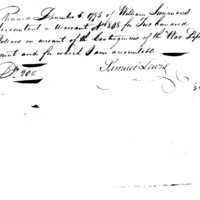 Received December 5. 1795 of William Simmons
Accountant a Warrant No 818 for Two hundred
Dollars on account of the Contingencies of the War Depart
ment and for which I am accountable
Ds 200
Samuel Lewis